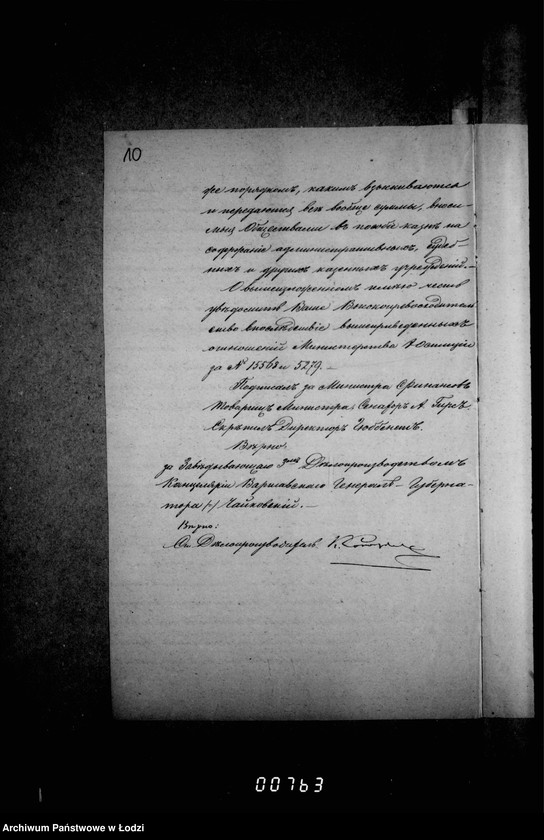 10
же порядкомъ, какимъ взыскиваются
и передаются всѣ вообще суммы, вноси-
мыя Обществами въ пособіе казнѣ на
содержаніе административныхъ, судеб-
ныхъ и другихъ казенныхъ учрежденій.—
О вышеизложенномъ имѣю честь
увѣдомить Ваше Высокопревосходитель
ство вслѣдствіе вышеприведенныхъ
отношеній Министерства Юстиціи
за № 15568 и 5279.—
Подписалъ за Министра Финансовъ
Товарищъ Министра, Сенаторъ А. Гирсъ.
Скрѣпилъ Директоръ
Вѣрно:
за Завѣдывающаго Дѣлопроизводствомъ
Канцеляріи Варшавскаго Генералъ-Губерна-
тора (-) Чайковскій.—
Вѣрно:
Дѣлопроизводитель
00763
Archiwum Państwowe w Łodzi